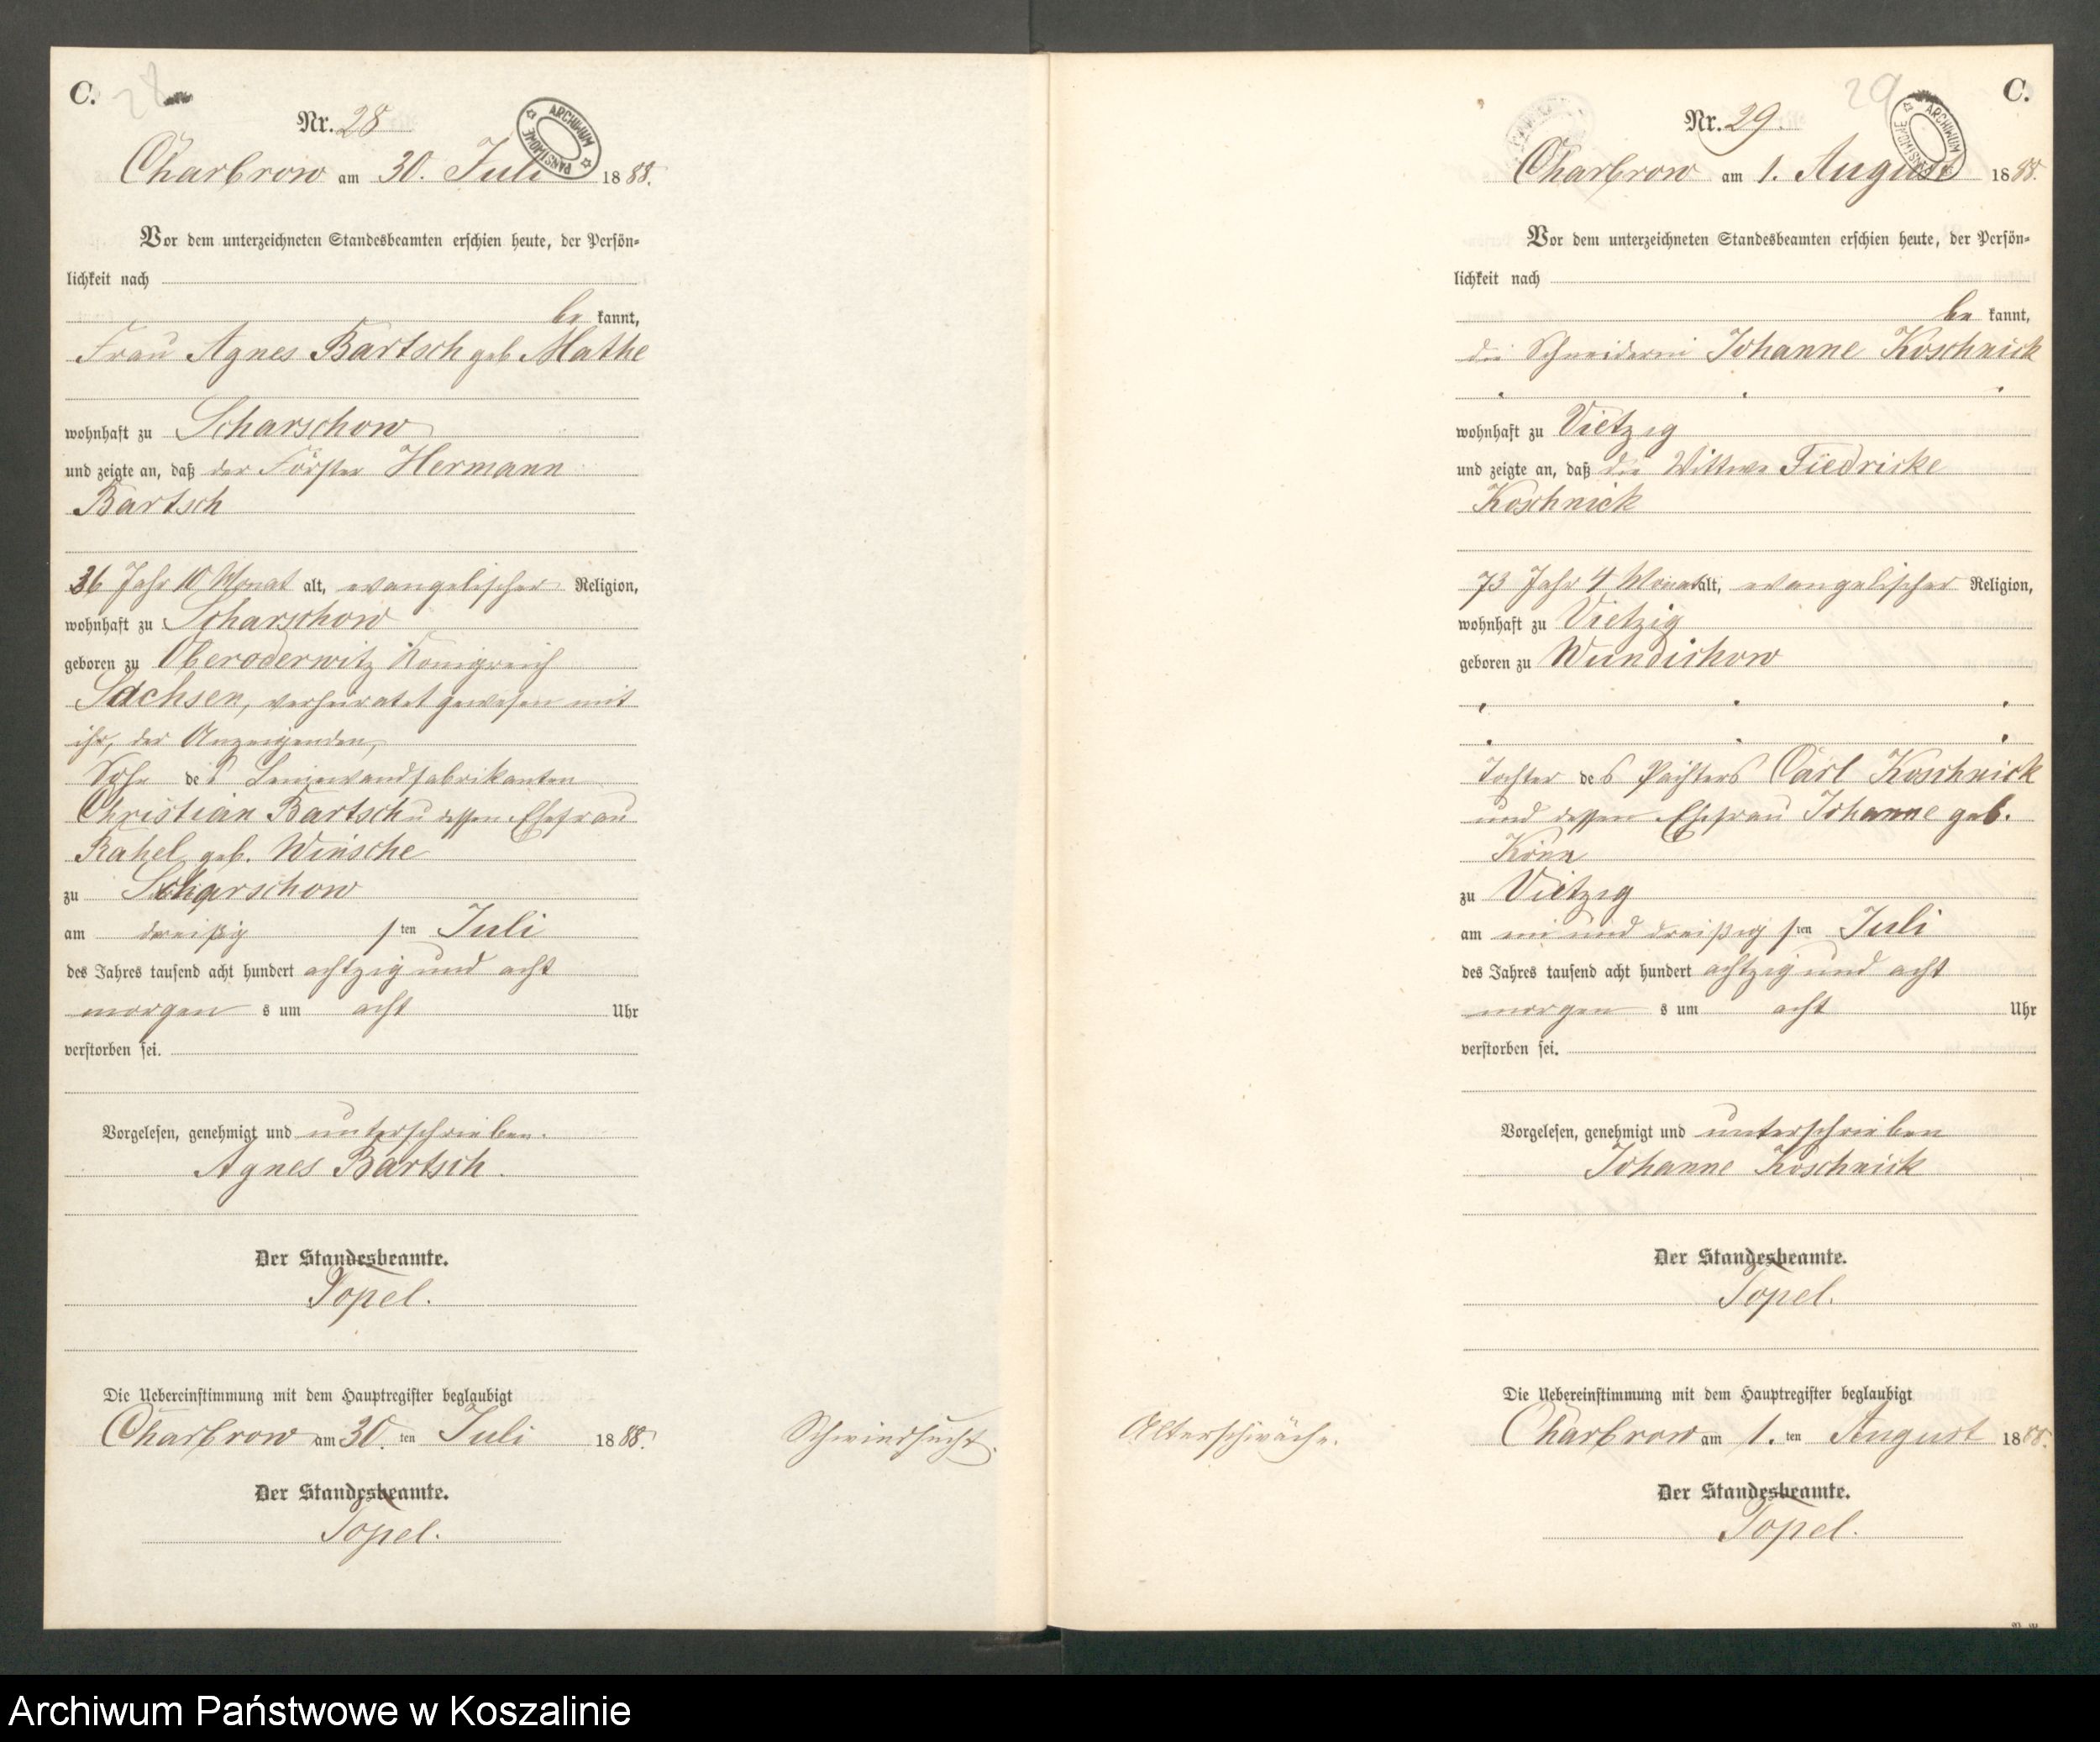 C.
28
Nr. 28
ARCHIWUM PAŃSTWOWE
Charbrow am 30. Juli 1888.
Vor dem unterzeichneten Standesbeamten erschien heute, der Persön-
lichkeit nach
be kannt,
Frau Agnes Bartsch geb. Mathe
wohnhaft zu Scharschow
und zeigte an, daß der Förster Hermann
Bartsch
36 Jahr 10 Monat alt, evangelischer Religion,
wohnhaft zu Scharschow
geboren zu Oberoderwitz Königreich
Sachsen, verheiratet gewesen mit
ihr, der Anzeigenden,
Sohn des Leinewandfabrikanten
Christian Bartsch u dessen Ehefrau
Rahel geb. Winsche
zu Scharschow
am dreißig sten Juli
des Jahres tausend acht hundert achtzig und acht
morgen s um acht Uhr
verstorben sei.
Vorgelesen, genehmigt und unterschrieben.
Agnes Bartsch.
Der Standesbeamte.
Topel.
Die Uebereinstimmung mit dem Hauptregister beglaubigt
Charbrow am 30. ten Juli 1888.
Der Standesbeamte.
Topel.
Schwindsucht.
29
C.
Nr. 29.
ARCHIWUM PAŃSTWOWE
Charbrow am 1. August 1888.
Vor dem unterzeichneten Standesbeamten erschien heute, der Persön-
lichkeit nach
be kannt,
die Schneiderin Johanne Koschnick
wohnhaft zu Vietzig
und zeigte an, daß die Wittwe Fiedricke
Koschnick
73 Jahr 4 Monat alt, evangelischer Religion,
wohnhaft zu Vietzig
geboren zu Wundichow
Tochter des Pächters Carl Koschnick
und dessen Ehefrau Johanne geb.
zu Vietzig
am ein und dreißig sten Juli
des Jahres tausend acht hundert achtzig und acht
morgen s um acht Uhr
verstorben sei.
Vorgelesen, genehmigt und unterschrieben
Johanne Koschnick
Der Standesbeamte.
Topel.
Die Uebereinstimmung mit dem Hauptregister beglaubigt
Charbrow am 1. ten August 1888.
Der Standesbeamte.
Topel.
Alterschwäche.
Archiwum Państwowe w Koszalinie